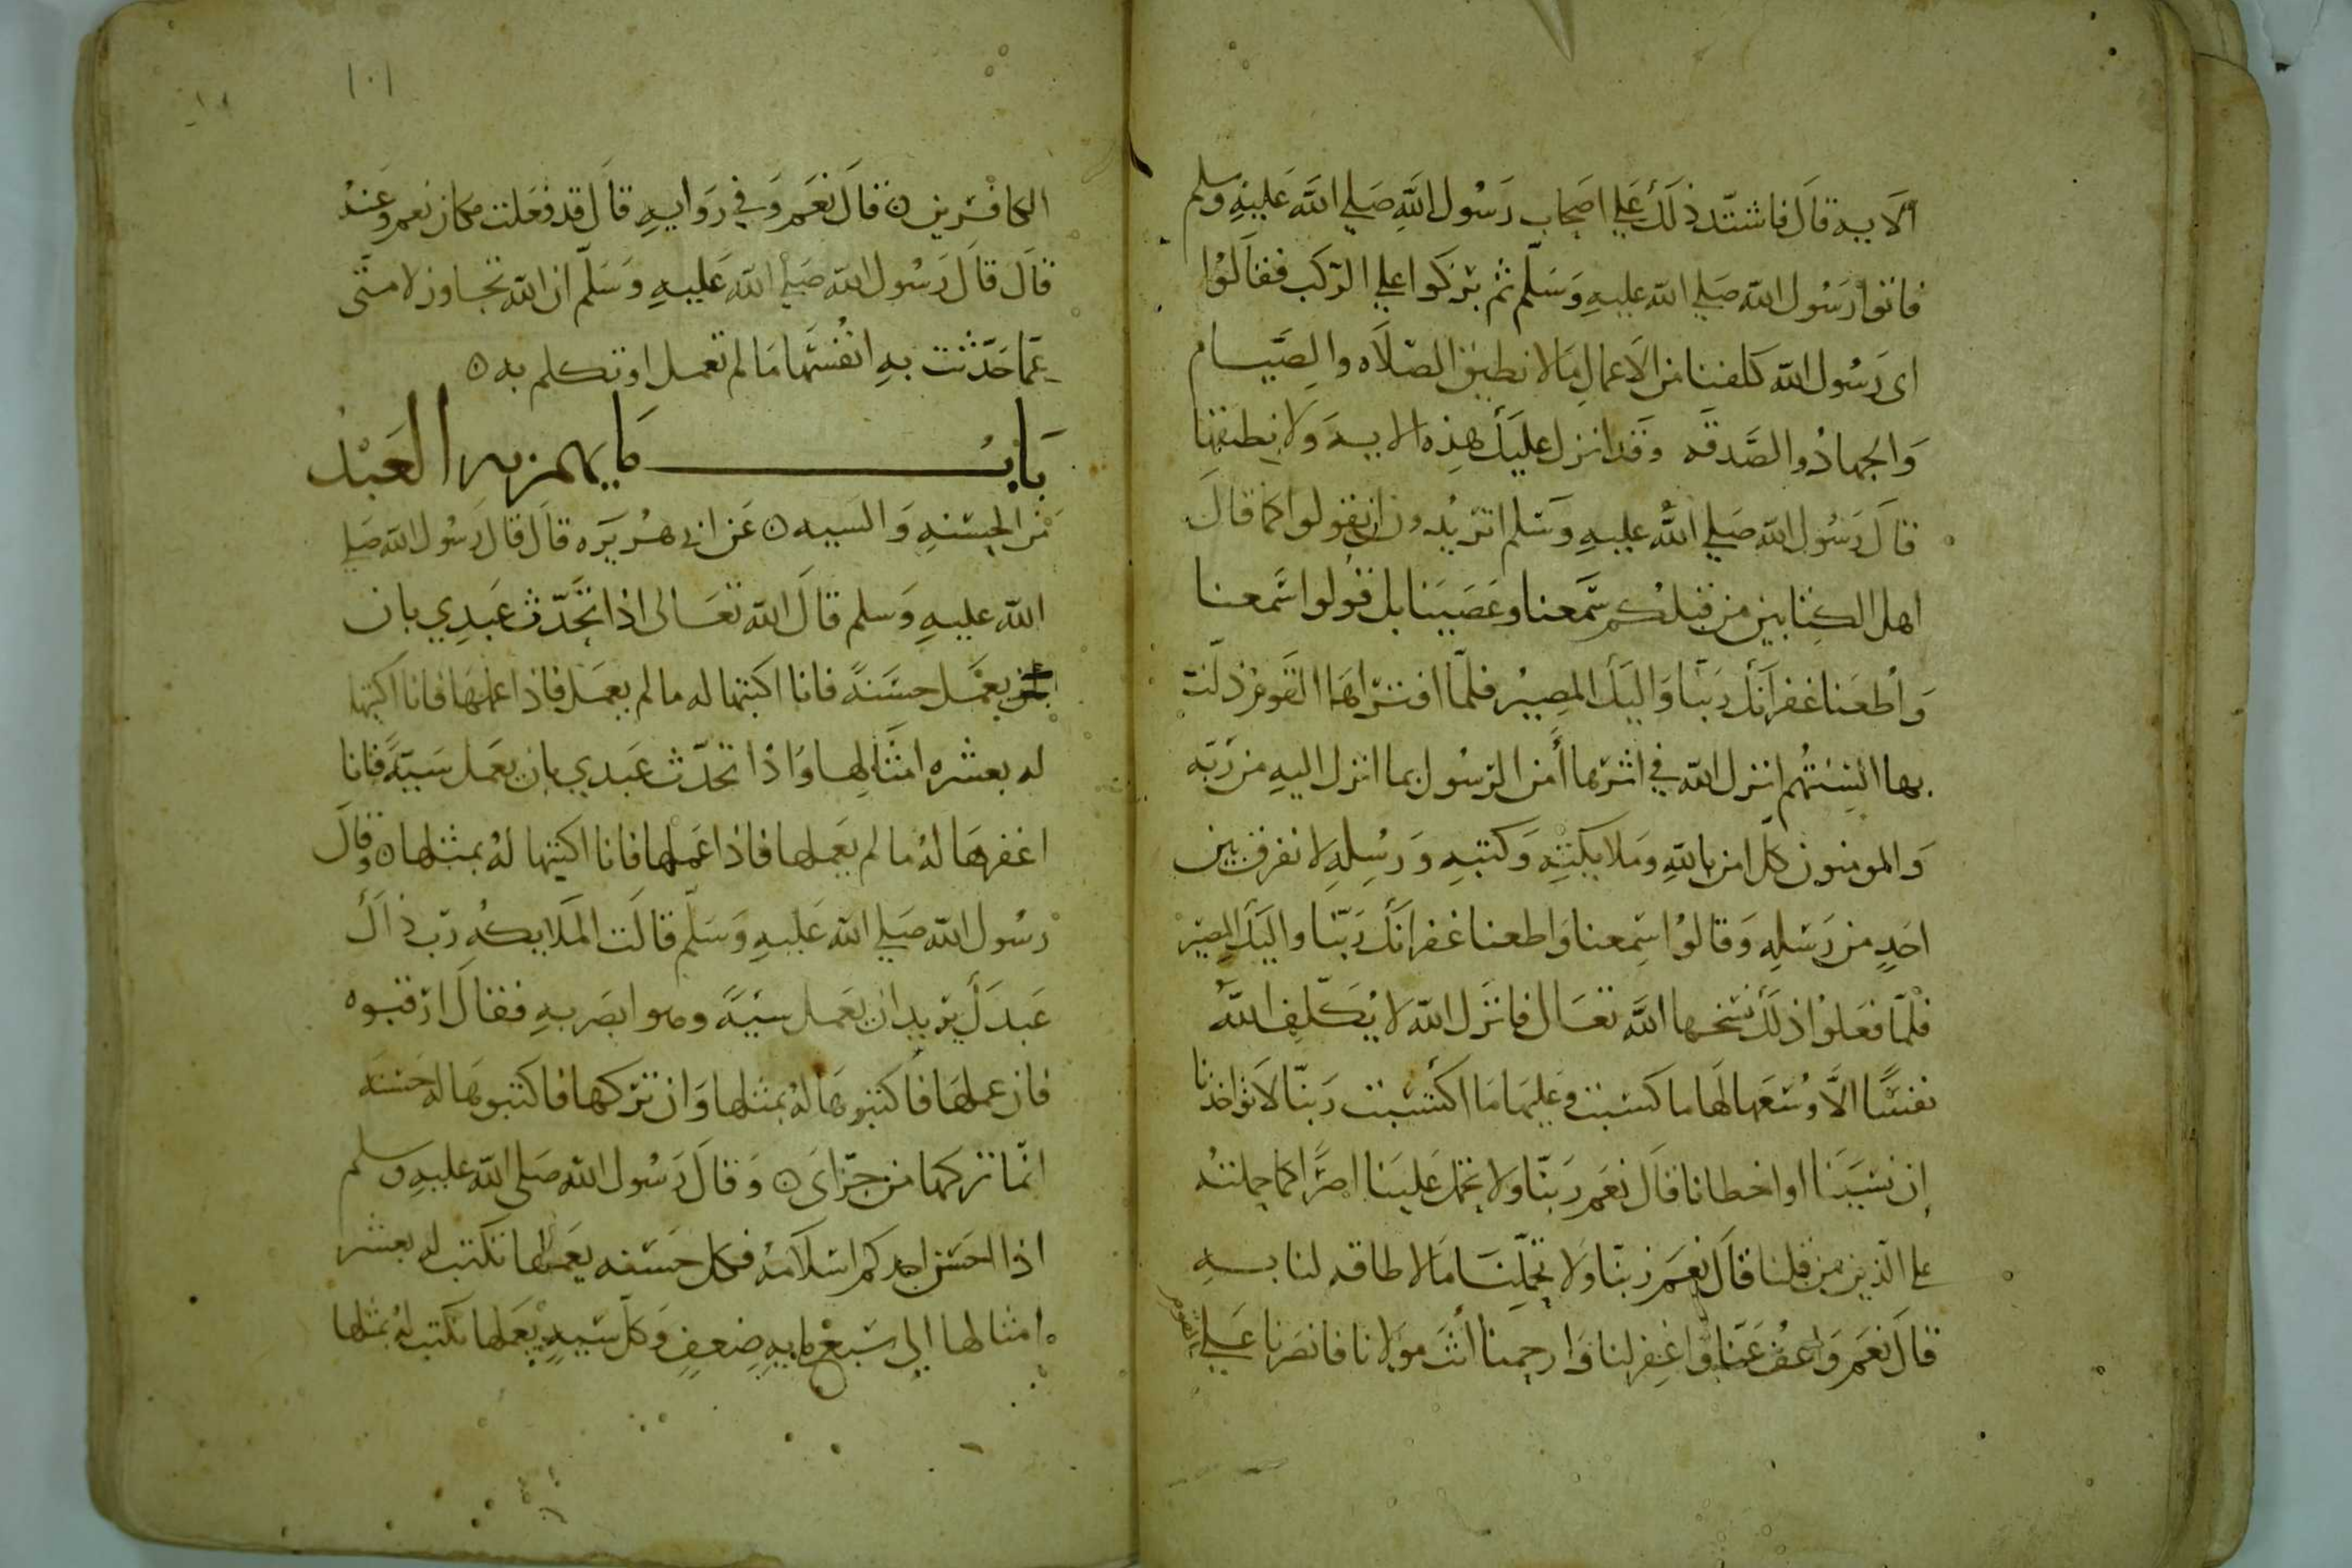 الايه قال فاشتد ذلك علي اصحاب رسول الله صلي الله عليه وسلم
فاتوا رسول الله صلي الله عليه وسلم ثم بركوا علي الركب فقالوا
اى رسول الله كلفنا من الاعمال ما لا نطيق الصلاه والصيام
والجهاد والصدقه وقد انزل عليك هذه الايه ولا نطيقها
قال رسول الله صلي الله عليه وسلم اتريدون ان تقولوا كما قال
اهل الكتابين من قبلكم سمعنا وعصينا بل قولوا سمعنا
واطعنا غفرانك ربنا واليك المصير فلما اقتراها القوم ذلت
بها السنتهم انزل الله في اثرها أمن الرسول بما انزل اليه من ربه
والمومنون كل امن بالله وملايكته وكتبه ورسله لا نفرق بين
احد من رسله وقالوا سمعنا واطعنا غفرانك ربنا واليك المصير
فلما فعلوا ذلك نسخها الله تعال فانزل الله لا يكلف الله
نفسًا الا وسعها لها ما كسبت وعليها ما اكتسبت ربنا لا تواخذنا
إن نسينا او اخطانا قال نعم ربنا ولا تحمل علينا اصرًا كما حملته
علي الذين من قبلنا قال نعم ربنا ولا تحملنا ما لا طاقه لنا به
قال نعم واعف عنا واغفر لنا وارحمنا انت مولانا فانصرنا علي القوم
١٠١
الكافرين ه قال نعم وفي روايه قال قد فعلت مكان نعم وعنه
قال قال رسول الله صلي الله عليه وسلم ان الله تجاوز لامتى
عما حدثت به انفسها ما لم تعمل او تكلم به ه
باب ما يهم به العبد
من الحسنه والسيه ه عن ابى هريره قال قال رسول الله صلي
الله عليه وسلم قال الله تعالى اذا تحدث عبدي بان
يعمل حسنةً فانا اكتبها له ما لم يعمل فاذا عملها فانا اكتبها
له بعشره امثالها واذا تحدث عبدي بان يعمل سيئةً فانا
اغفرها له ما لم يعملها فاذا عملها فانا اكتبها له بمثلها ه وقال
رسول الله صلي الله عليه وسلم قالت الملايكه رب ذاك
عبدك يريد ان يعمل سيئة وهو ابصر به فقال ارقبوه
فان عملها فاكتبوها له بمثلها وان تركها فاكتبوها له حسنه
انما تركها من جراى ه وقال رسول الله صلى الله عليه وسلم
اذا احسن احدكم اسلامه فكل حسنه يعملها تكتب له بعشر
امثالها الي سبع مايه ضعف وكل سيه يعملها تكتب له بمثلها